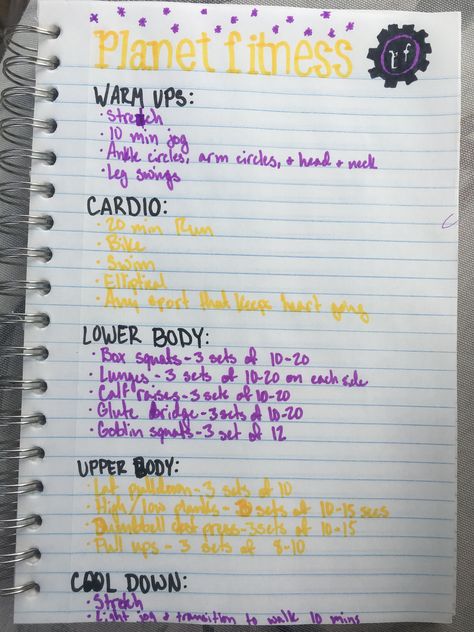 Planet fitness
Pf
WARM UPS:
· Stretch
· 10 min jog
· Ankle circles, arm circles, + head + neck
· Leg swings
CARDIO:
· 20 min Run
· Bike
· Swim
· Elliptical
· Any sport that keeps heart going
LOWER BODY:
· Box squats - 3 sets of 10-20
· Lunges - 3 sets of 10-20 on each side
· Calf raises - 3 sets of 10-20
· Glute Bridge - 3 sets of 10-20
· Goblin squats - 3 set of 12
UPPER BODY:
· Lat pulldown - 3 sets of 10
· High/low planks - 3 sets of 10-15 secs
· Dumbbell chest press - 3 sets of 10-15
· Pull ups - 3 sets of 8-10
COOL DOWN:
· Stretch
· Light jog + transition to walk 10 mins